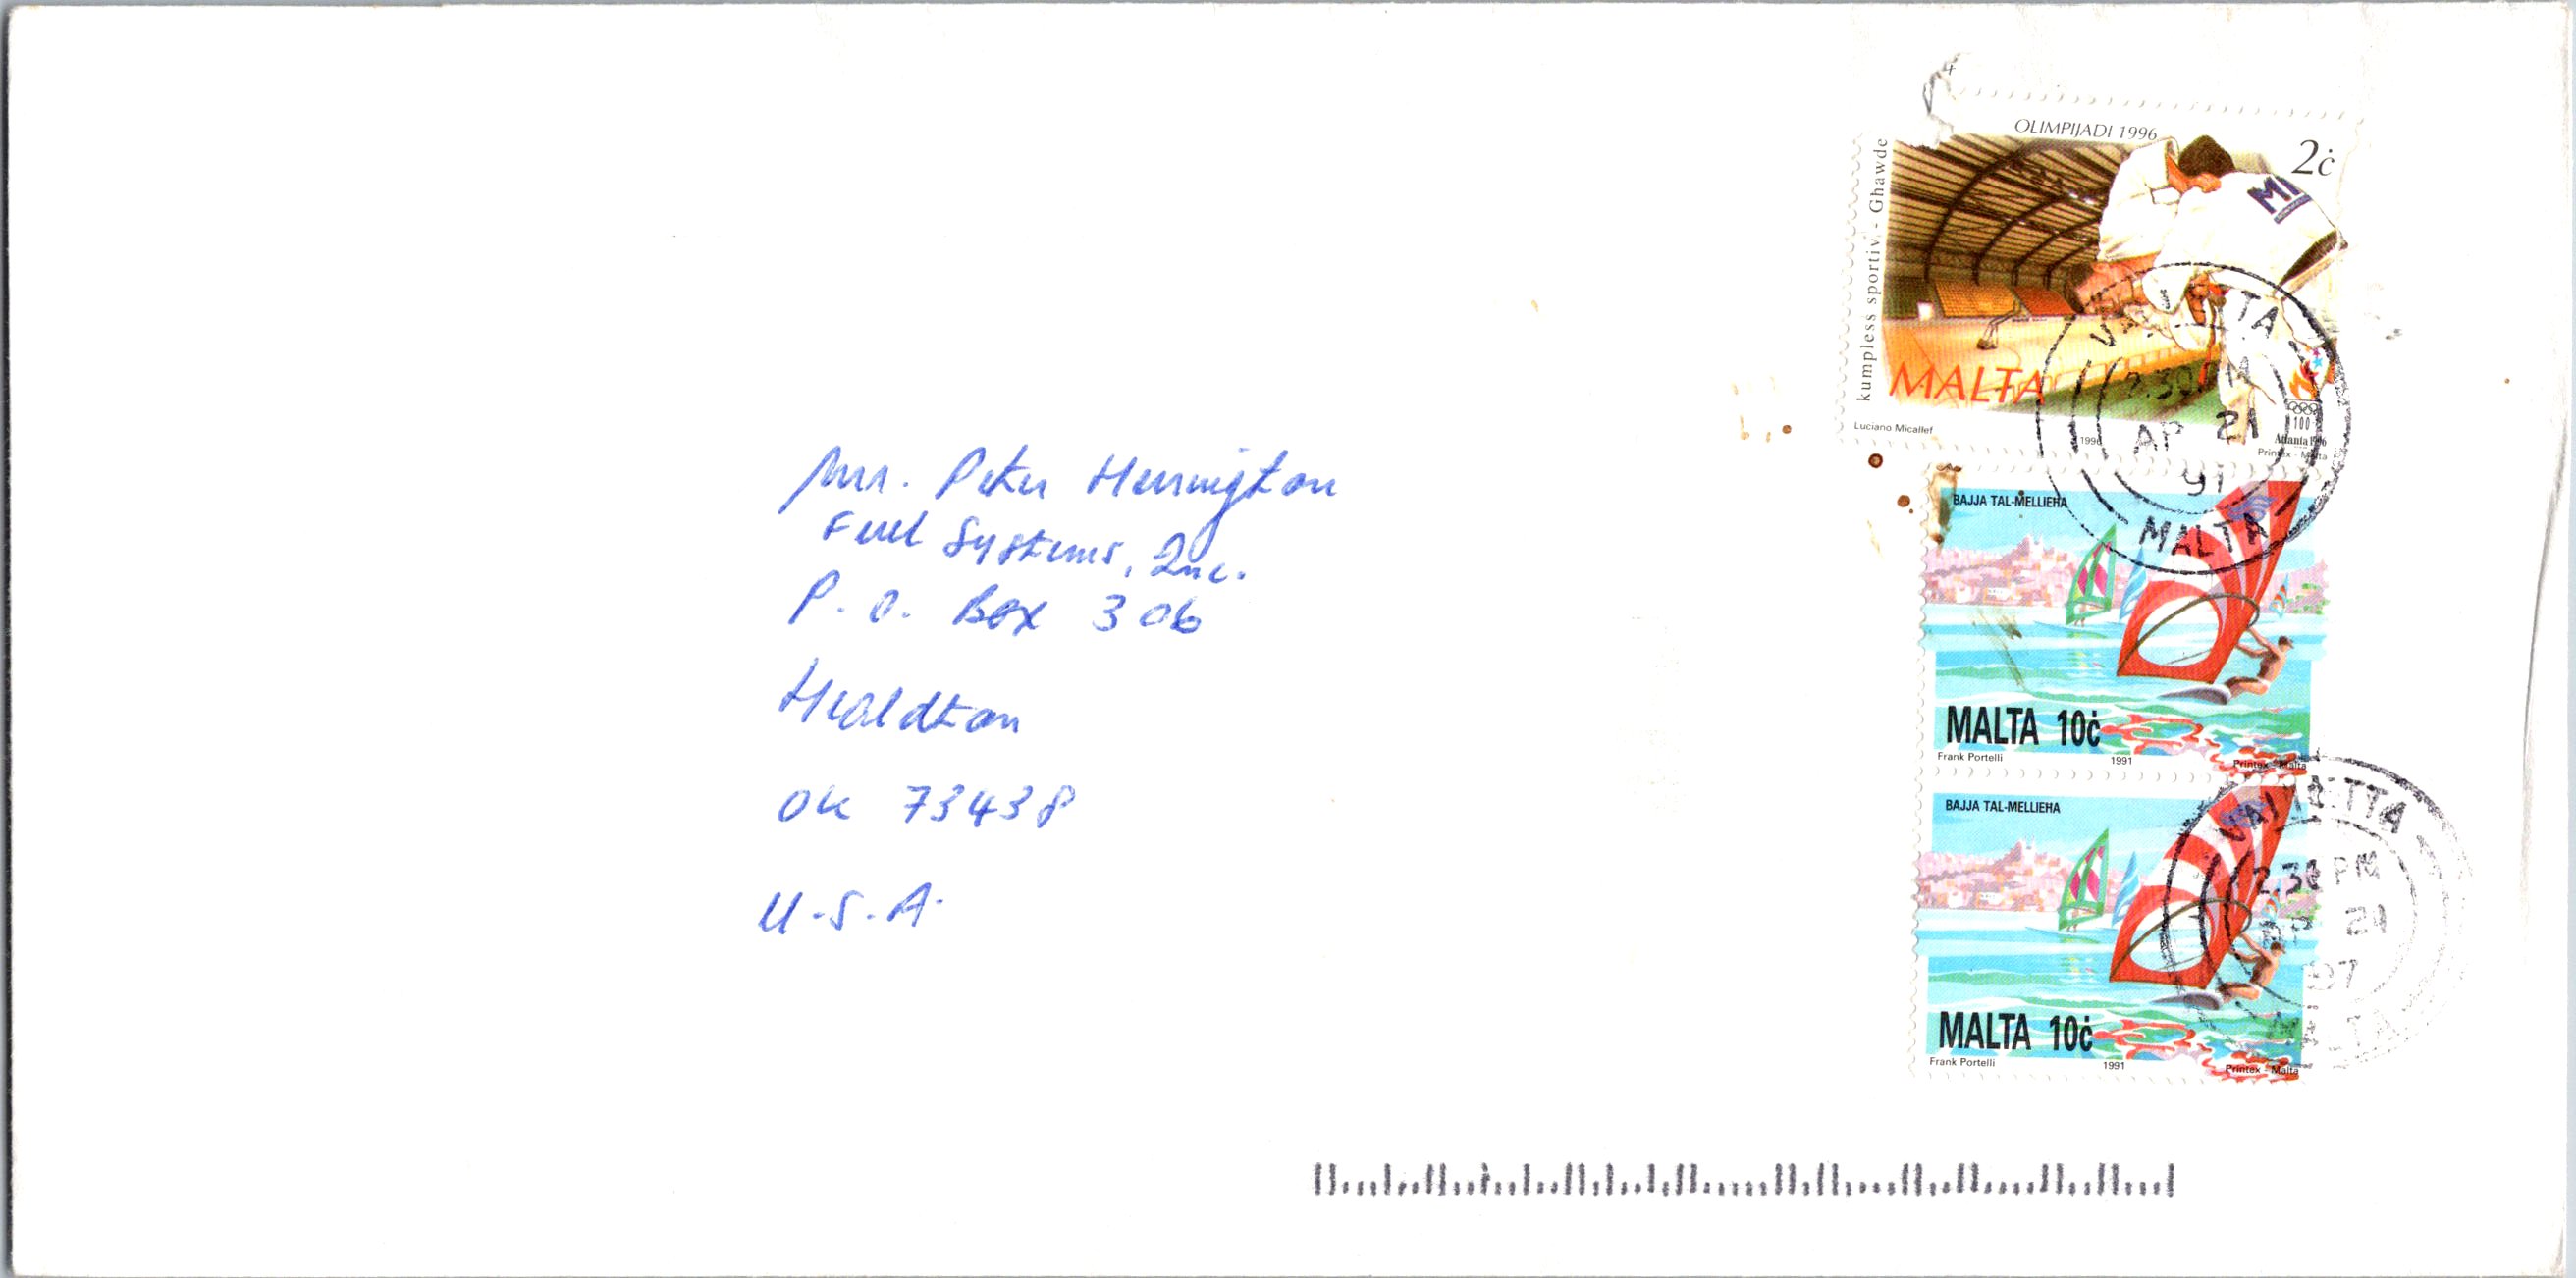 Mr. Peter Herrington
Fuel Systems, Inc.
P. O. Box 306
Healdton
OK 73438
U.S.A.
OLIMPIJADI 1996
2ċ
kumpless sportiv - Għawdex
MALTA
Luciano Micallef
1996
100
Atlanta 1996
Printex - Malta
VALLETTA
2.30 PM
AP 21
MALTA
BAJJA TAL-MELLIEĦA
MALTA 10ċ
Frank Portelli 1991 Printex - Malta
BAJJA TAL-MELLIEĦA
MALTA 10ċ
Frank Portelli 1991 Printex - Malta
VALLETTA
2.30 PM
AP 21
97
MALTA